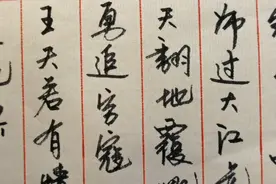 师过大江
天翻地覆
勇追穷寇
王天若有情